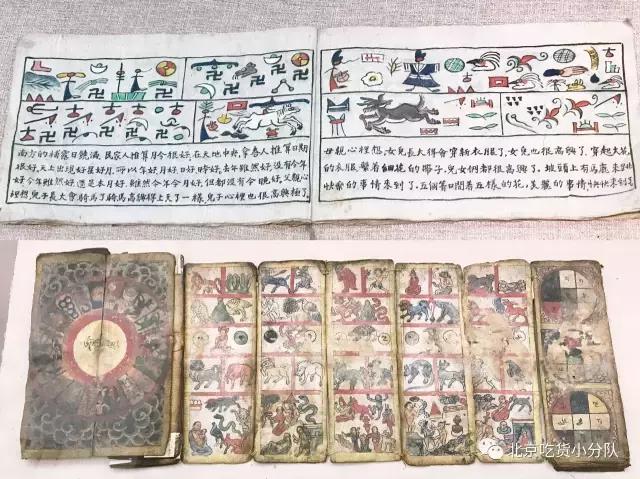 南方的補露日曉滿,民家人推算月今很好,在天地中央,拿春人推算日期
很好,天上出現好星好月,所以年好,月好,日好,時好,去年雖然好,沒有今年
好,今年雖然好,還是本月好,雖然今年今月好,但都沒有今晚好,父親心
裡想,兒子長大會騎馬了,騎馬高興得上天了一樣,兒子心裡也很高興極了。
母親心裡想,女兒長大得會穿新衣服了,女兒也很高興了,穿起
的衣服,繫着細花的帶子,兒女們都很高興了。坡頭上有馬鹿來到
快樂的事情來到了。五個箐口開着五樣的花,美麗的事情快快來到了
北京吃货小分队